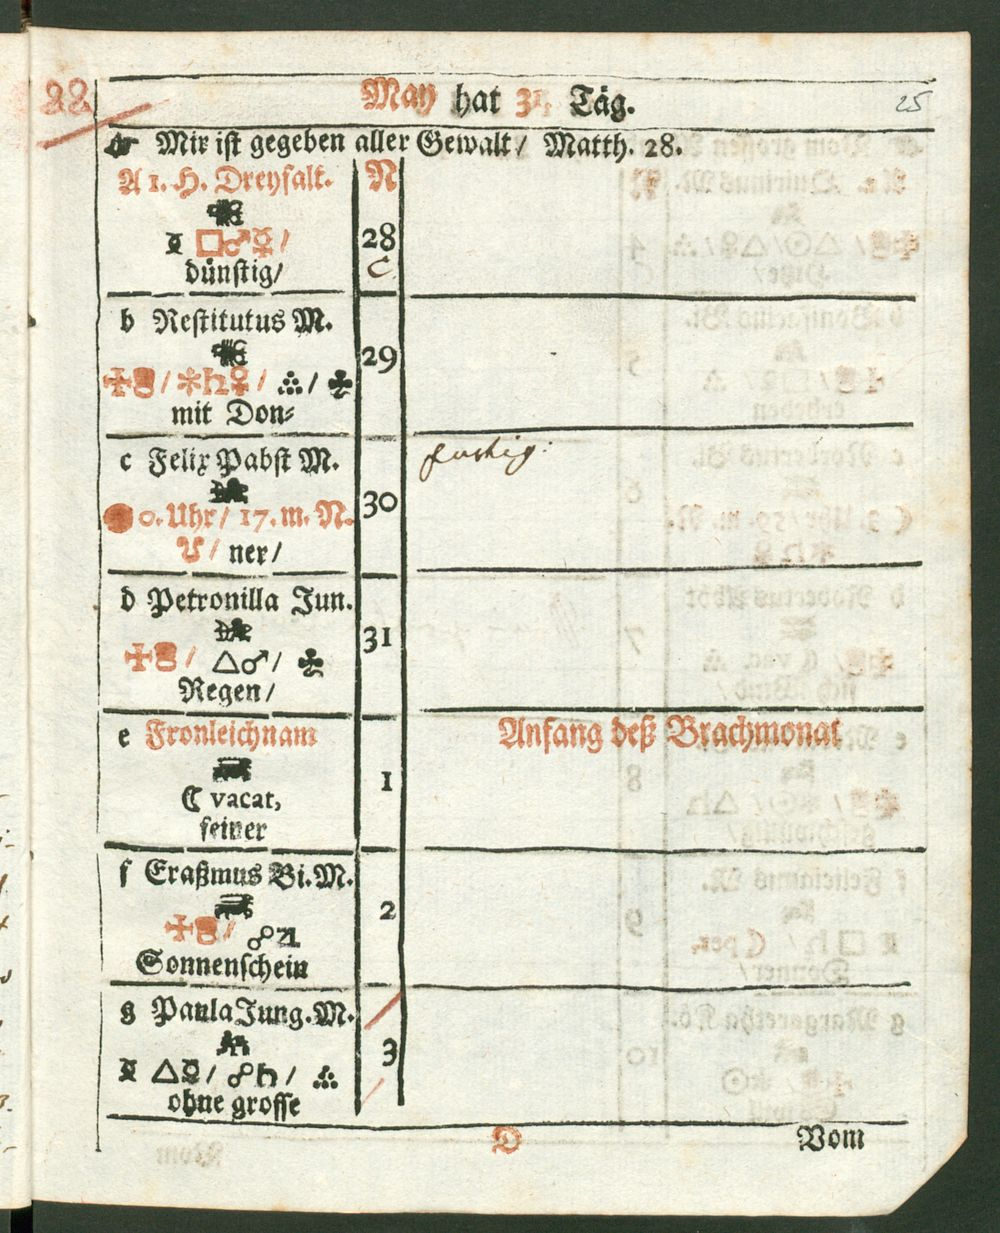 22
May hat 31. Täg.
25
☞ Mir ist gegeben aller Gewalt / Matth. 28.
A 1. H. Dreyfalt. N
□♂☿ /
28
dünstig /
C
b Restitutus M.
29
✠ / ✱♄♀ / ∴ / ♣
mit Don⸗
c Felix Pabst M.
30
● 0. Uhr / 17. m. N.
☋ / ner /
d Petronilla Jun.
31
✠ / △♂ / ♣
Regen /
e Fronleichnam
Anfang deß Brachmonat
1
☾ vacat,
feiner
f Eraßmus Bi. M.
2
✠ / ☍♃
Sonnenschein
g Paula Jung. M.
3
△☿ / ☍♄ / ∴
ohne grosse
D
Vom